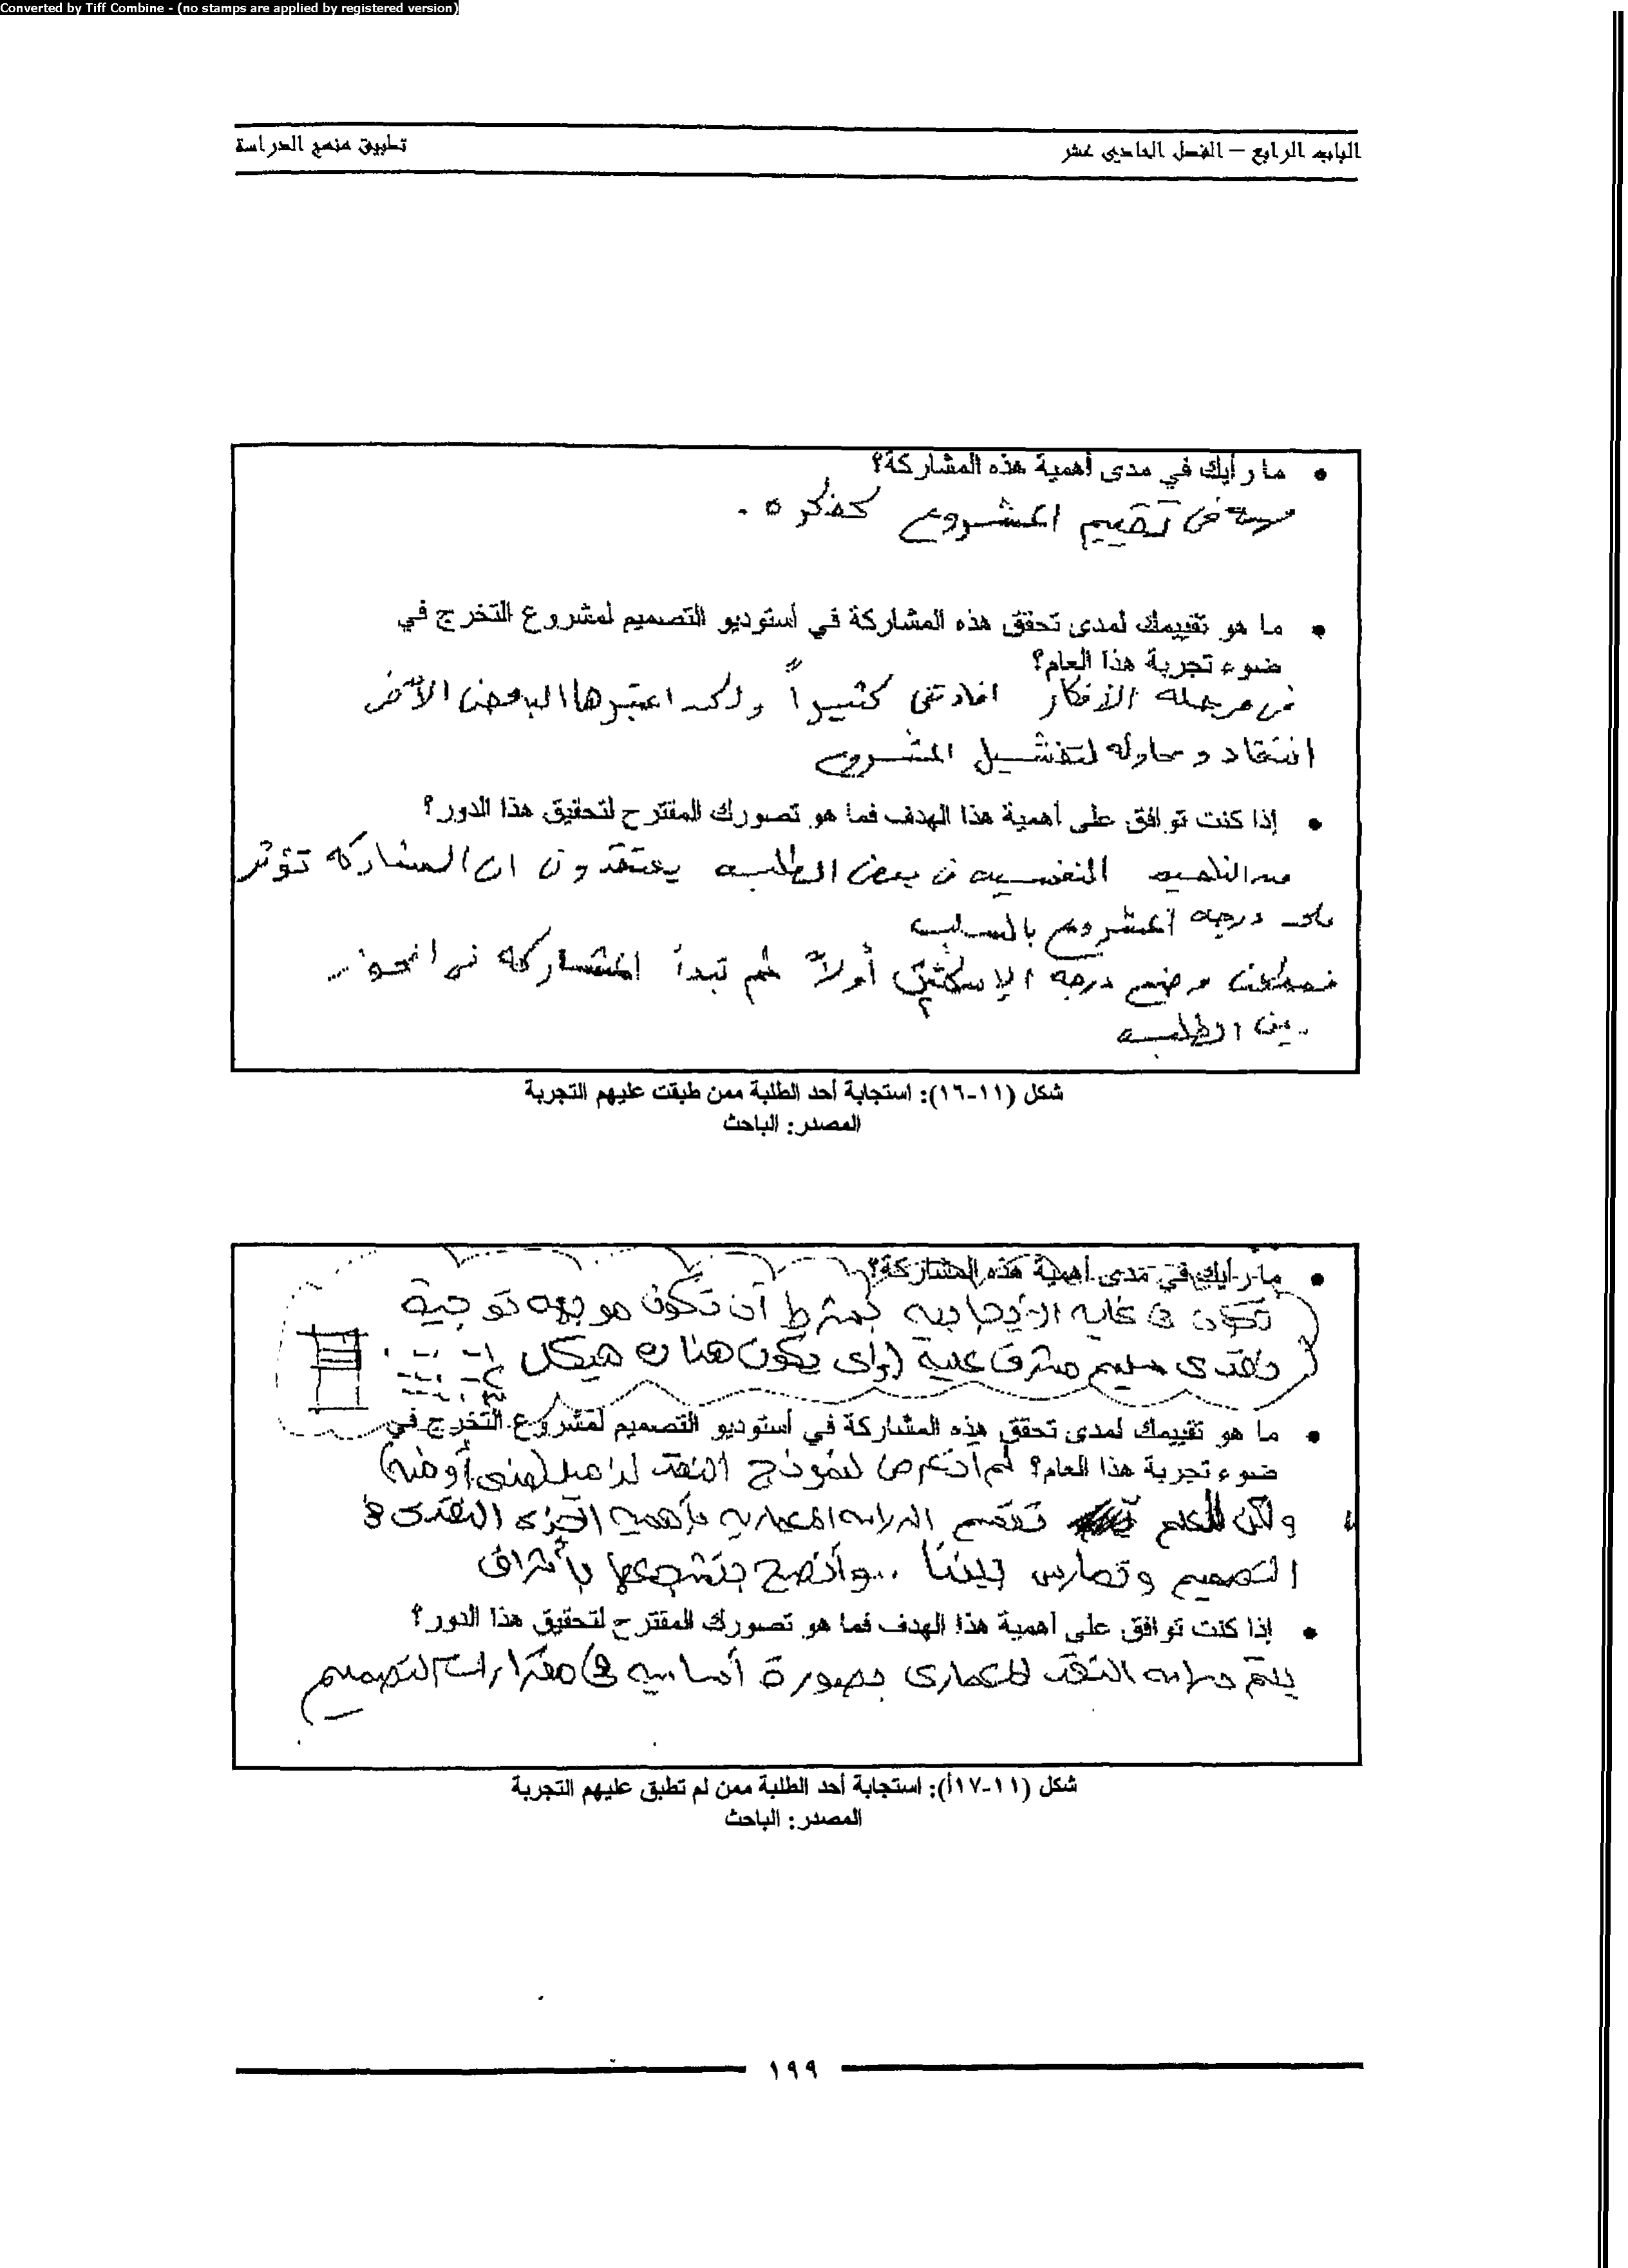 Converted by Tiff Combine - (no stamps are applied by registered version)
الباب الرابع – الفصل الحادي عشر
تطبيق منهج الدراسة
• ما رأيك في مدى أهمية هذه المشاركة؟
مهمة في تقييم المشروع كفكرة .
• ما هو تقييمك لمدى تحقق هذه المشاركة في أستوديو التصميم لمشروع التخرج في
ضوء تجربة هذا العام؟
في مرحلة الأفكار افادتني كثيراً ولكن اعتبرها البعض الآخر
انتقاد و محاولة لتفشيل المشروع
• إذا كنت توافق على أهمية هذا الهدف فما هو تصورك المقترح لتحقيق هذا الدور؟
من الناحيه النفسيه بعض الطلبه يعتقدون ان المشاركه تؤثر
على درجه المشروع بالسلب
وضع درجه الإسكتش أولاً ثم تبدأ المشاركه
بين الطلبه
شكل (١١-١٦): استجابة أحد الطلبة ممن طبقت عليهم التجربة
المصدر: الباحث
• ما رأيك في مدى أهمية هذه المشاركة؟
تكون في غايه الأيجابيه بشرط أن تكون موجهه توجية
نقدى سليم مشرف علية (أى يكون هناك هيكل
• ما هو تقييمك لمدى تحقق هذه المشاركة في أستوديو التصميم لمشروع التخرج في
ضوء تجربة هذا العام؟ لم أتعرض لنموذج النقد (منى أو منه)
ولكن تهتم الدراسه المعماريه بأهميه الجزء النقدى في
التصميم وتمارس بيننا .. وأنصح بتشجيعها بأشراف
• إذا كنت توافق على أهمية هذا الهدف فما هو تصورك المقترح لتحقيق هذا الدور؟
يتم دراسه النقد المعمارى بصورة أساسيه في مقررات التصميم
شكل (١١-١٧أ): استجابة أحد الطلبة ممن لم تطبق عليهم التجربة
المصدر: الباحث
١٩٩